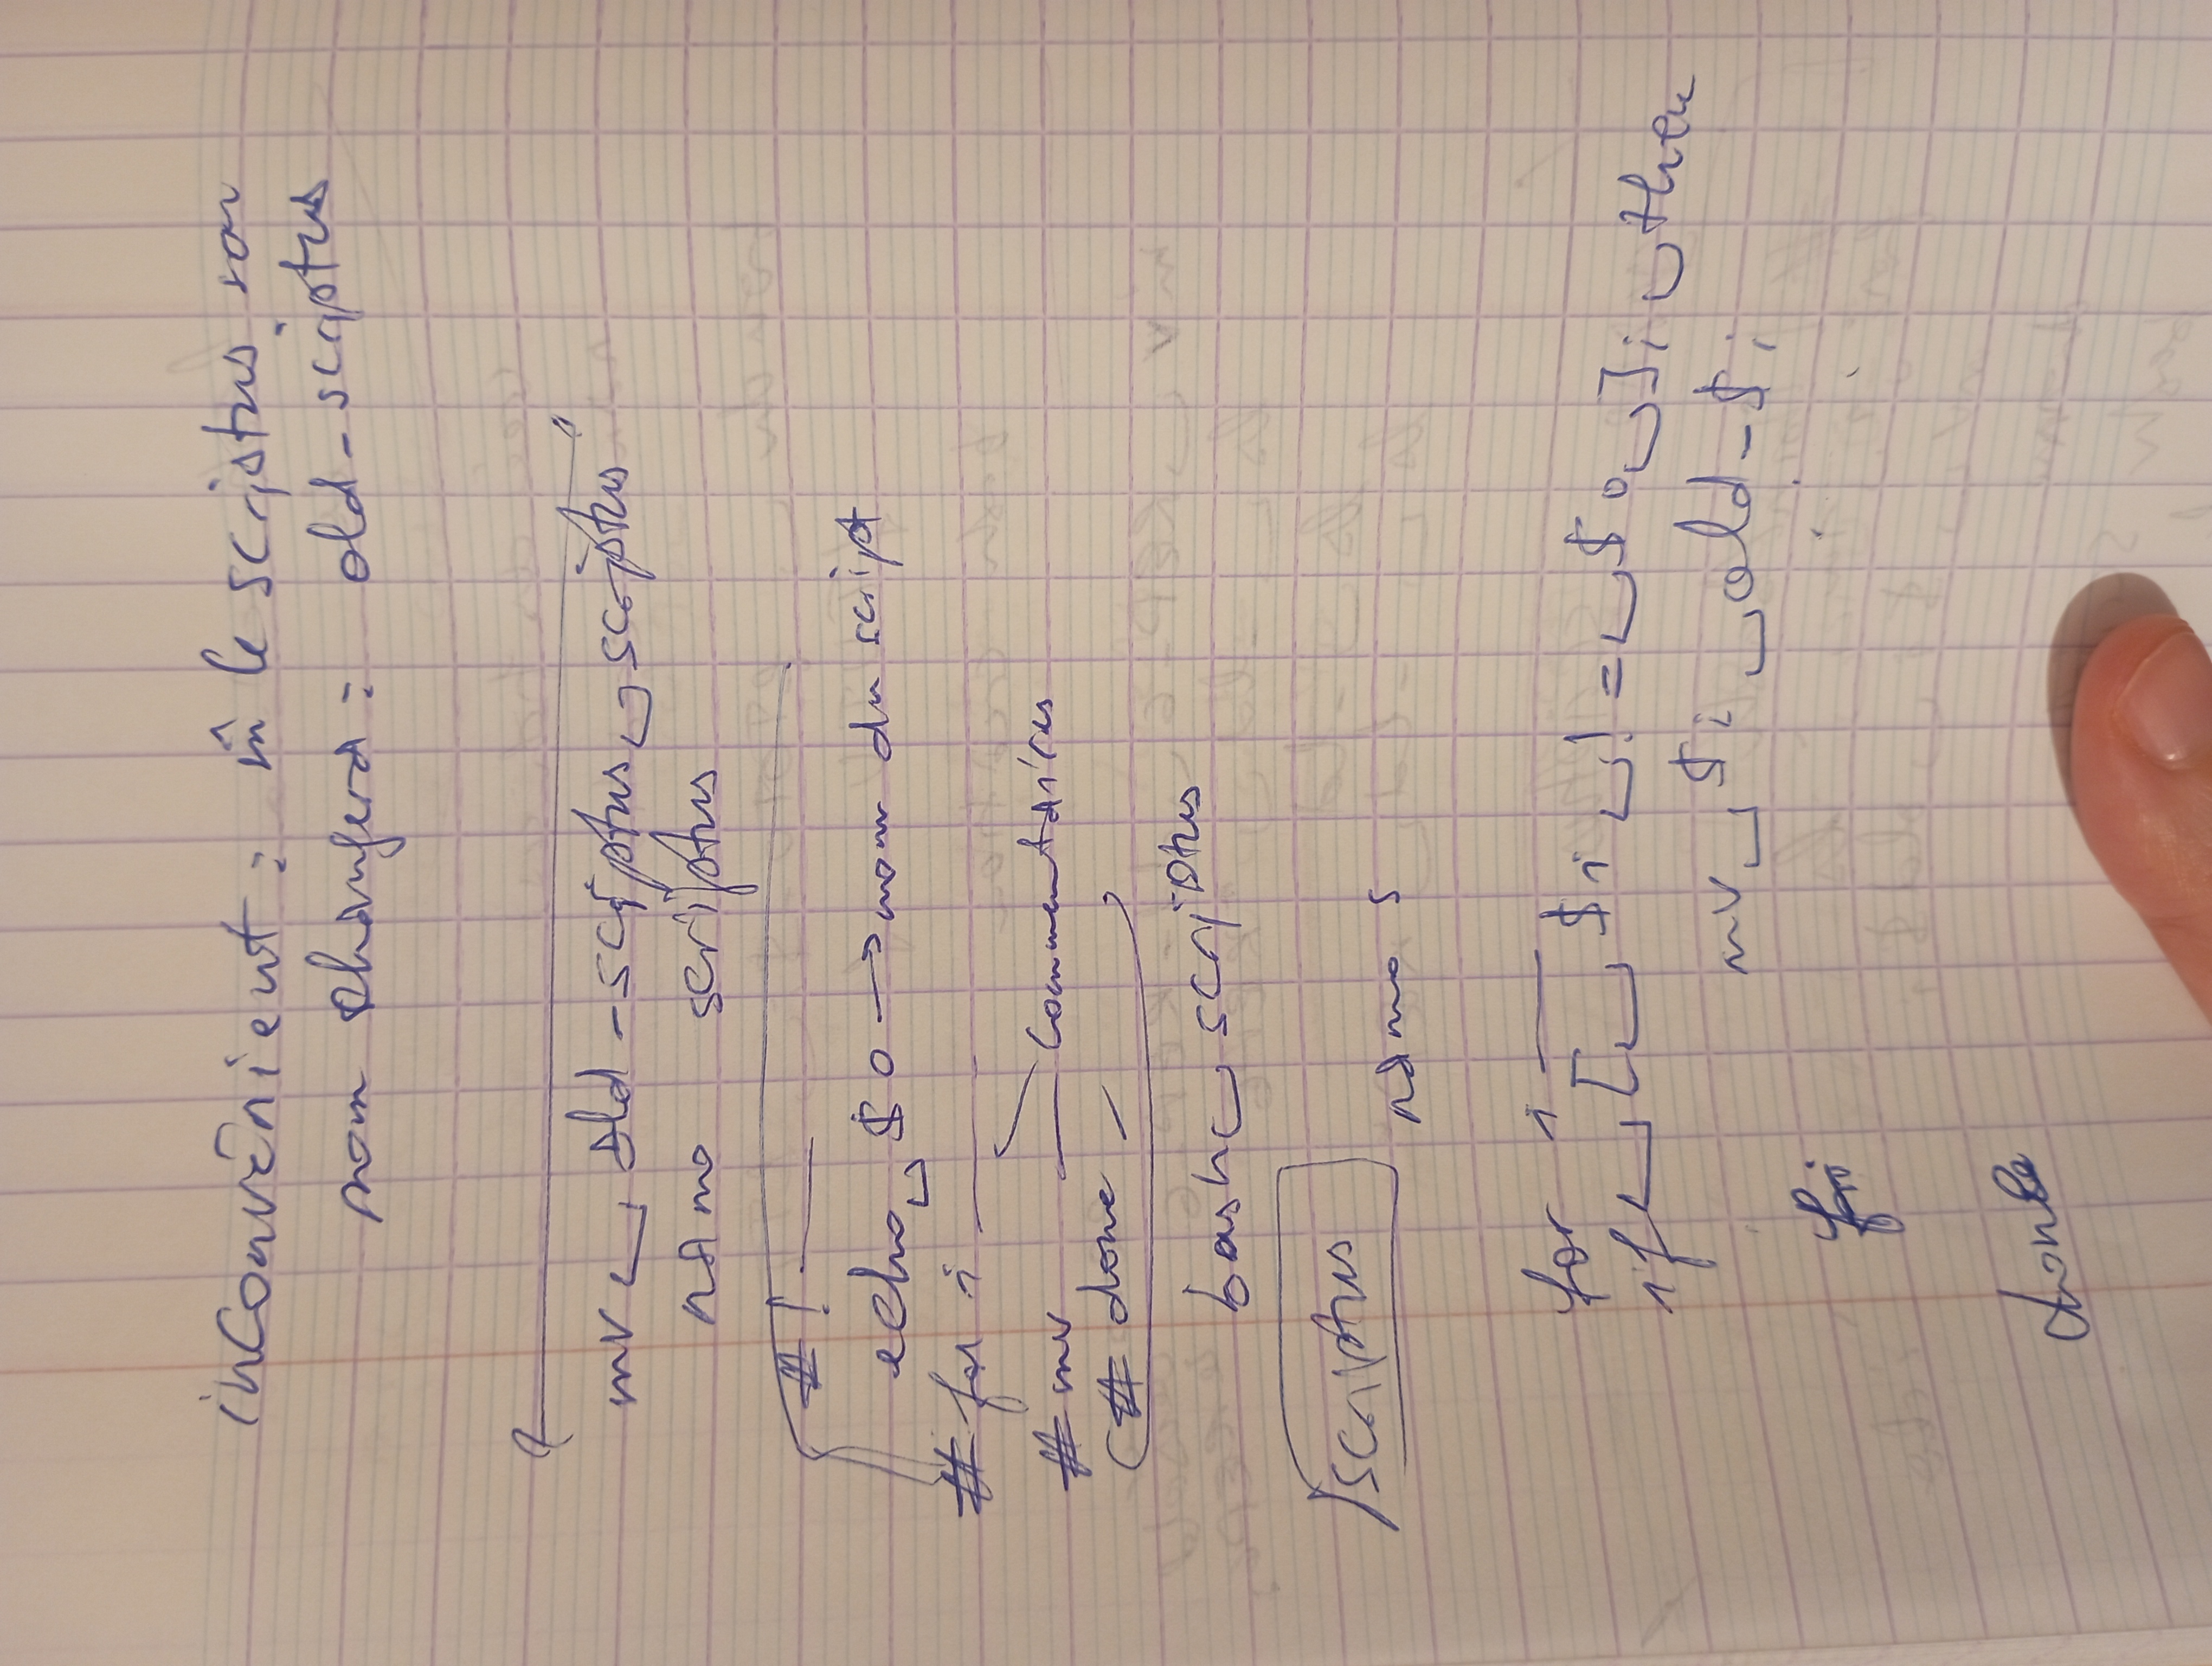 inconvénient : m̂ le scriptus son
nom changera : old-scriptus
mv ␣ old-scriptus ␣ scriptus
nano scriptus
#!
echo ␣ $0 → nom du script
# for i
# mv commentaires
# done
bash ␣ scriptus
scriptus
nano s
for i
if ␣ [ ␣ $i ␣ != ␣ $0 ␣ ]; ␣ then
mv ␣ $i ␣ old-$i
fi
done